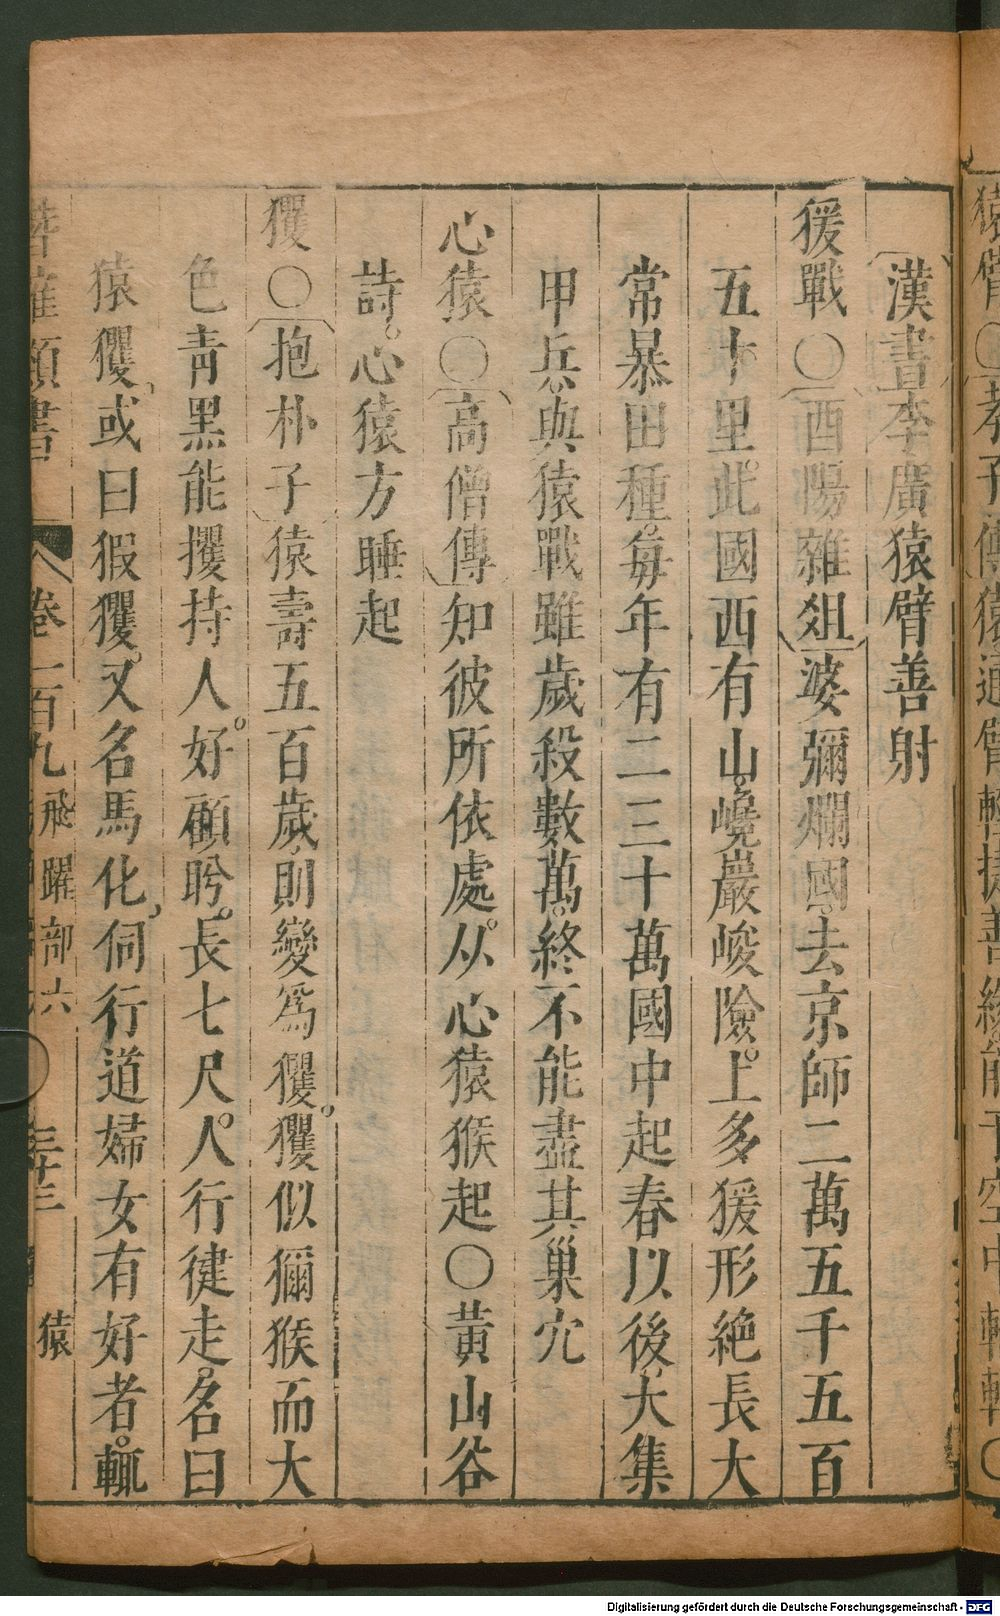 漢書李廣猿臂善射
猨戰〇酉陽雜俎婆彌爛國去京師二萬五千五百
五十里。此國西有山。嶢巖峻險。上多猨形絶長大
常暴田種。每年有二三十萬國中起春以後大集
甲兵與猿戰雖歲殺數萬。終不能盡其巢穴
心猿〇高僧傳知彼所依處。从心猿猴起〇黃山谷
詩。心猿方睡起
玃〇抱朴子猿壽五百歲則變爲玃。玃似獼猴而大
色青黑能攫持人。好顧盻。長七尺。人行徤走。名曰
猿玃。或曰猳玃。又名馬化。伺行道婦女有好者。輒
類書 卷一百九 飛躍部六 三十三 猿
Digitalisierung gefördert durch die Deutsche Forschungsgemeinschaft - DFG